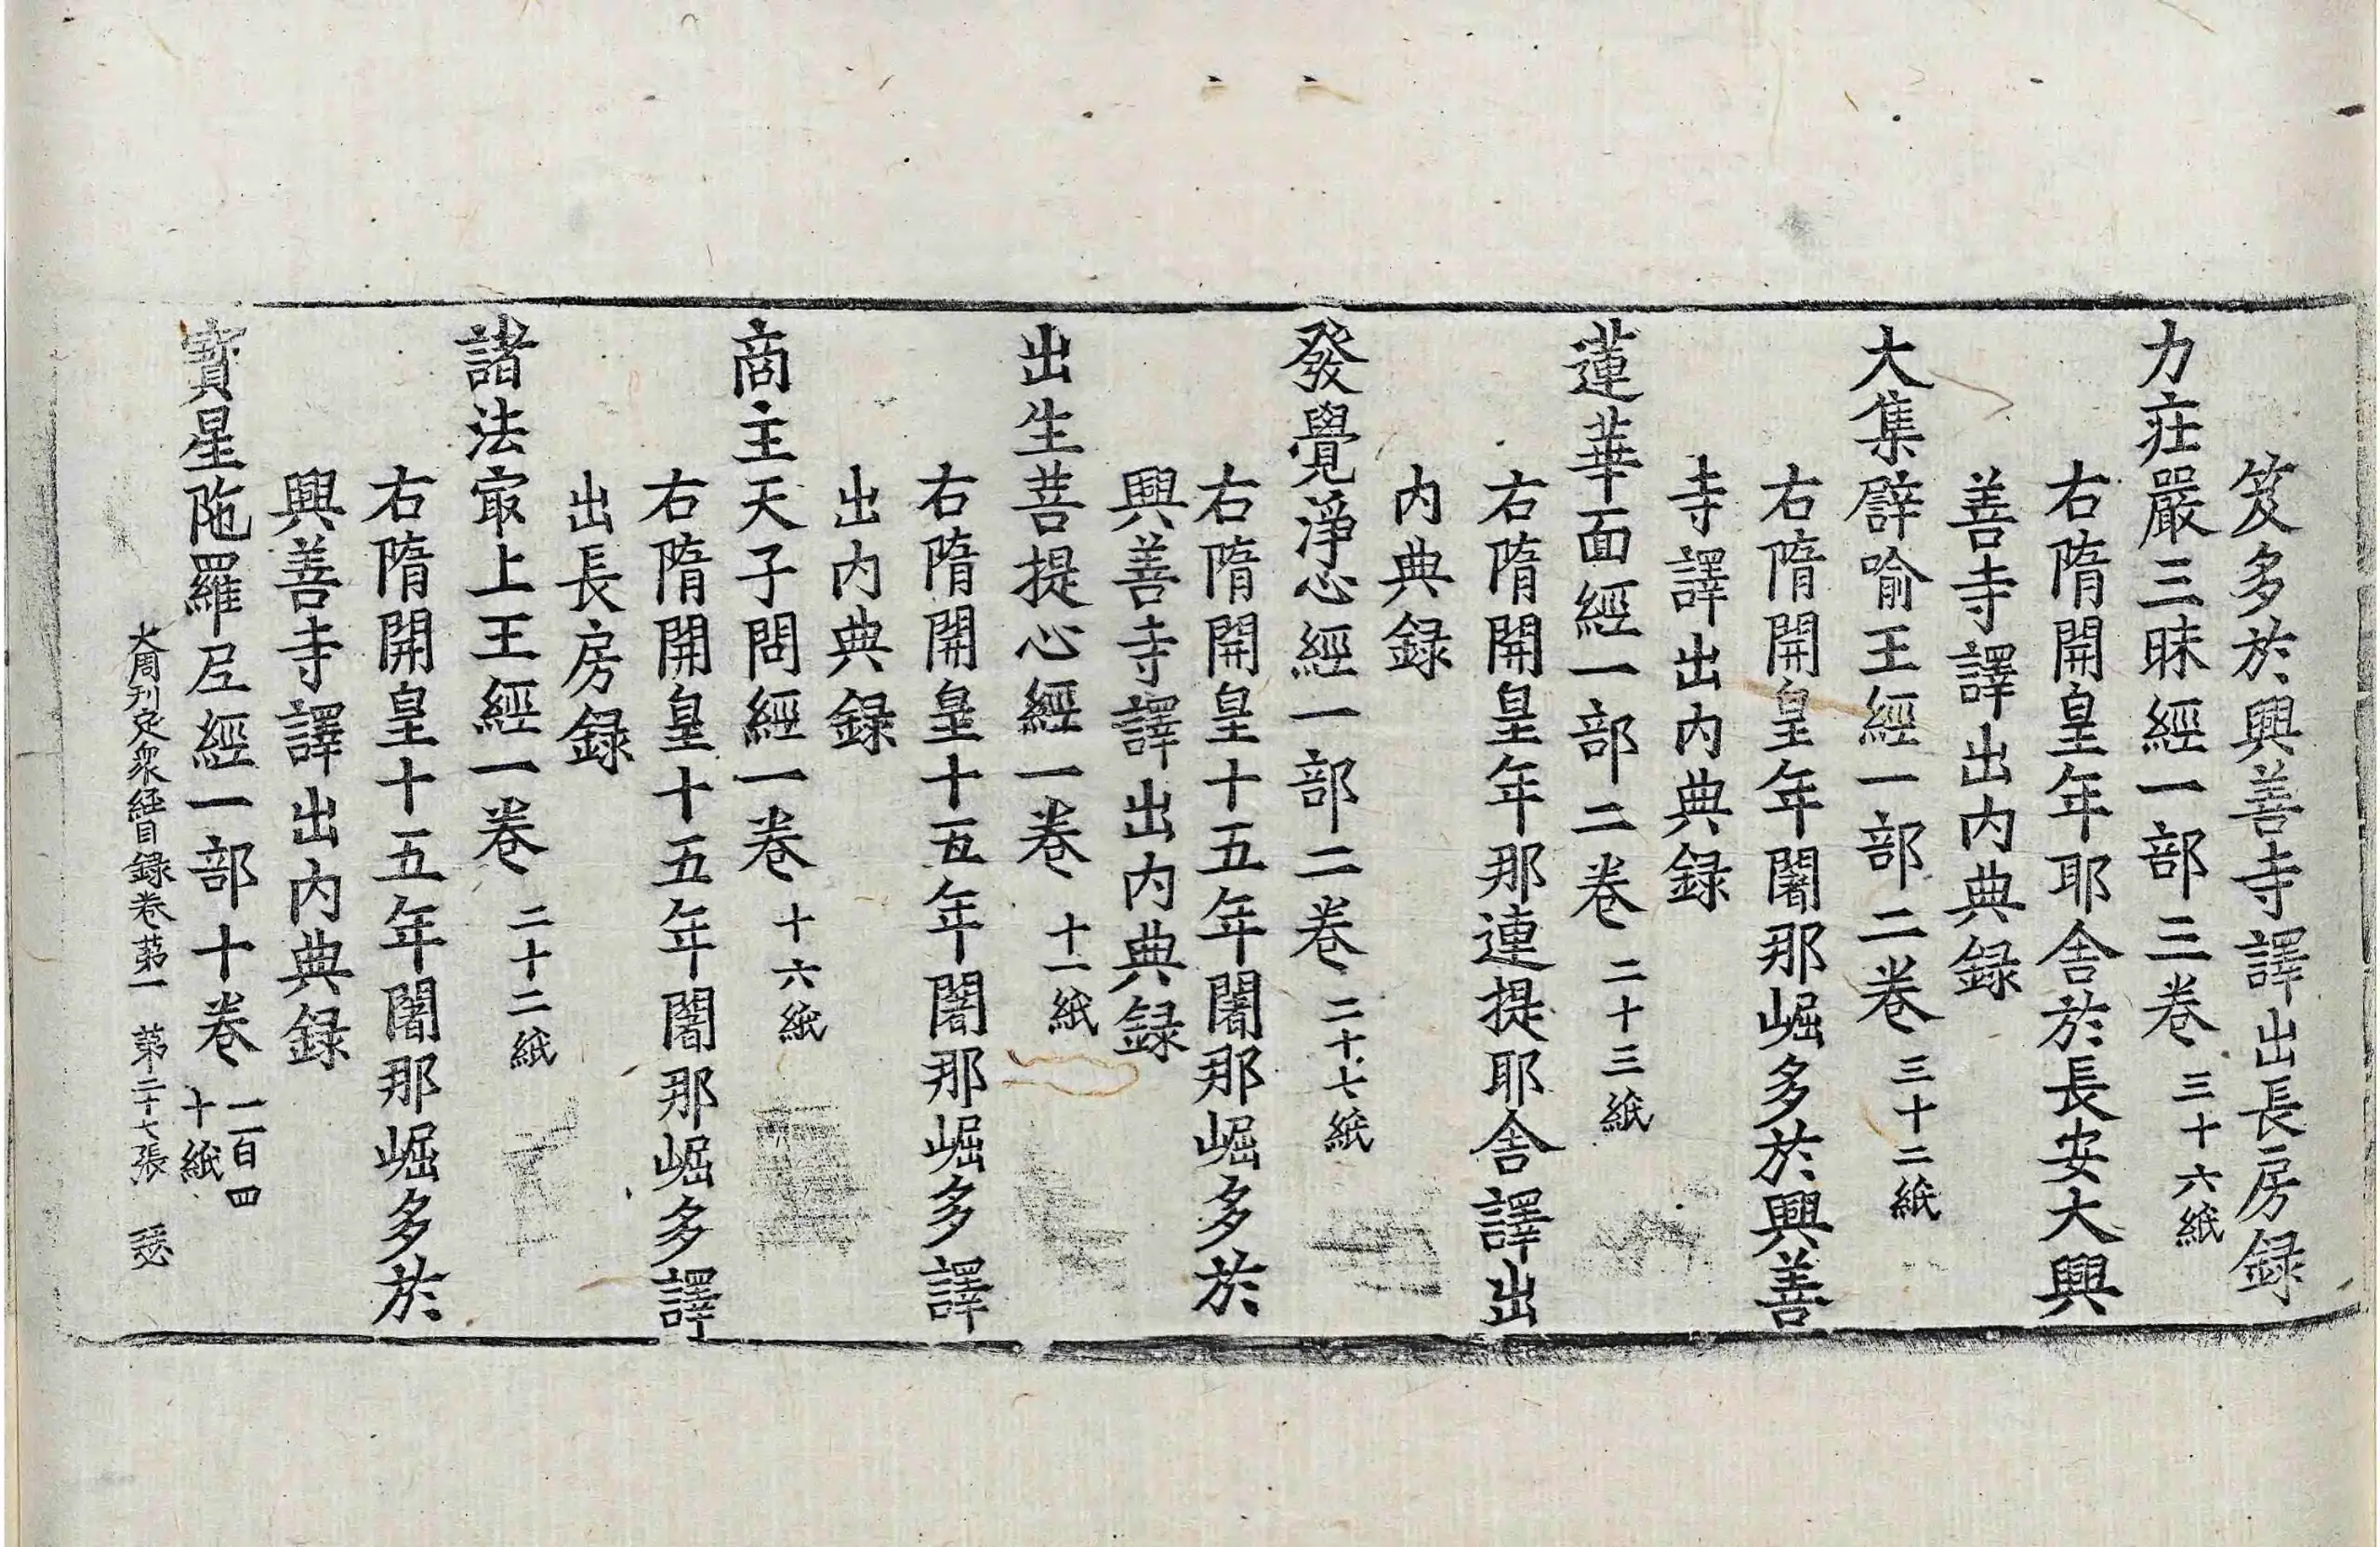 笈多於興善寺譯出長房録
力莊嚴三昧經一部三卷 三十六紙
右隋開皇年耶舍於長安大興
善寺譯出内典録
大集辟喻王經一部二卷 三十二紙
右隋開皇年闍那崛多於興善
寺譯出内典録
蓮華面經一部二卷 二十三紙
右隋開皇年那連提耶舍譯出
内典録
發覺淨心經一部二卷 二十七紙
右隋開皇十五年闍那崛多於
興善寺譯出内典録
出生菩提心經一卷 十一紙
右隋開皇十五年闍那崛多譯
出内典録
商主天子問經一卷 十六紙
右隋開皇十五年闍那崛多譯
出長房録
諸法冣上王經一卷 二十二紙
右隋開皇十五年闍那崛多於
興善寺譯出内典録
寳星陁羅尼經一部十卷 一百四十紙
大周刊定衆經目録卷苐一 苐二十七張